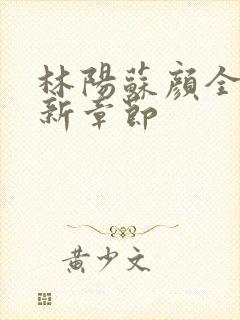 林陽蘇顏全
新章節
黃少文